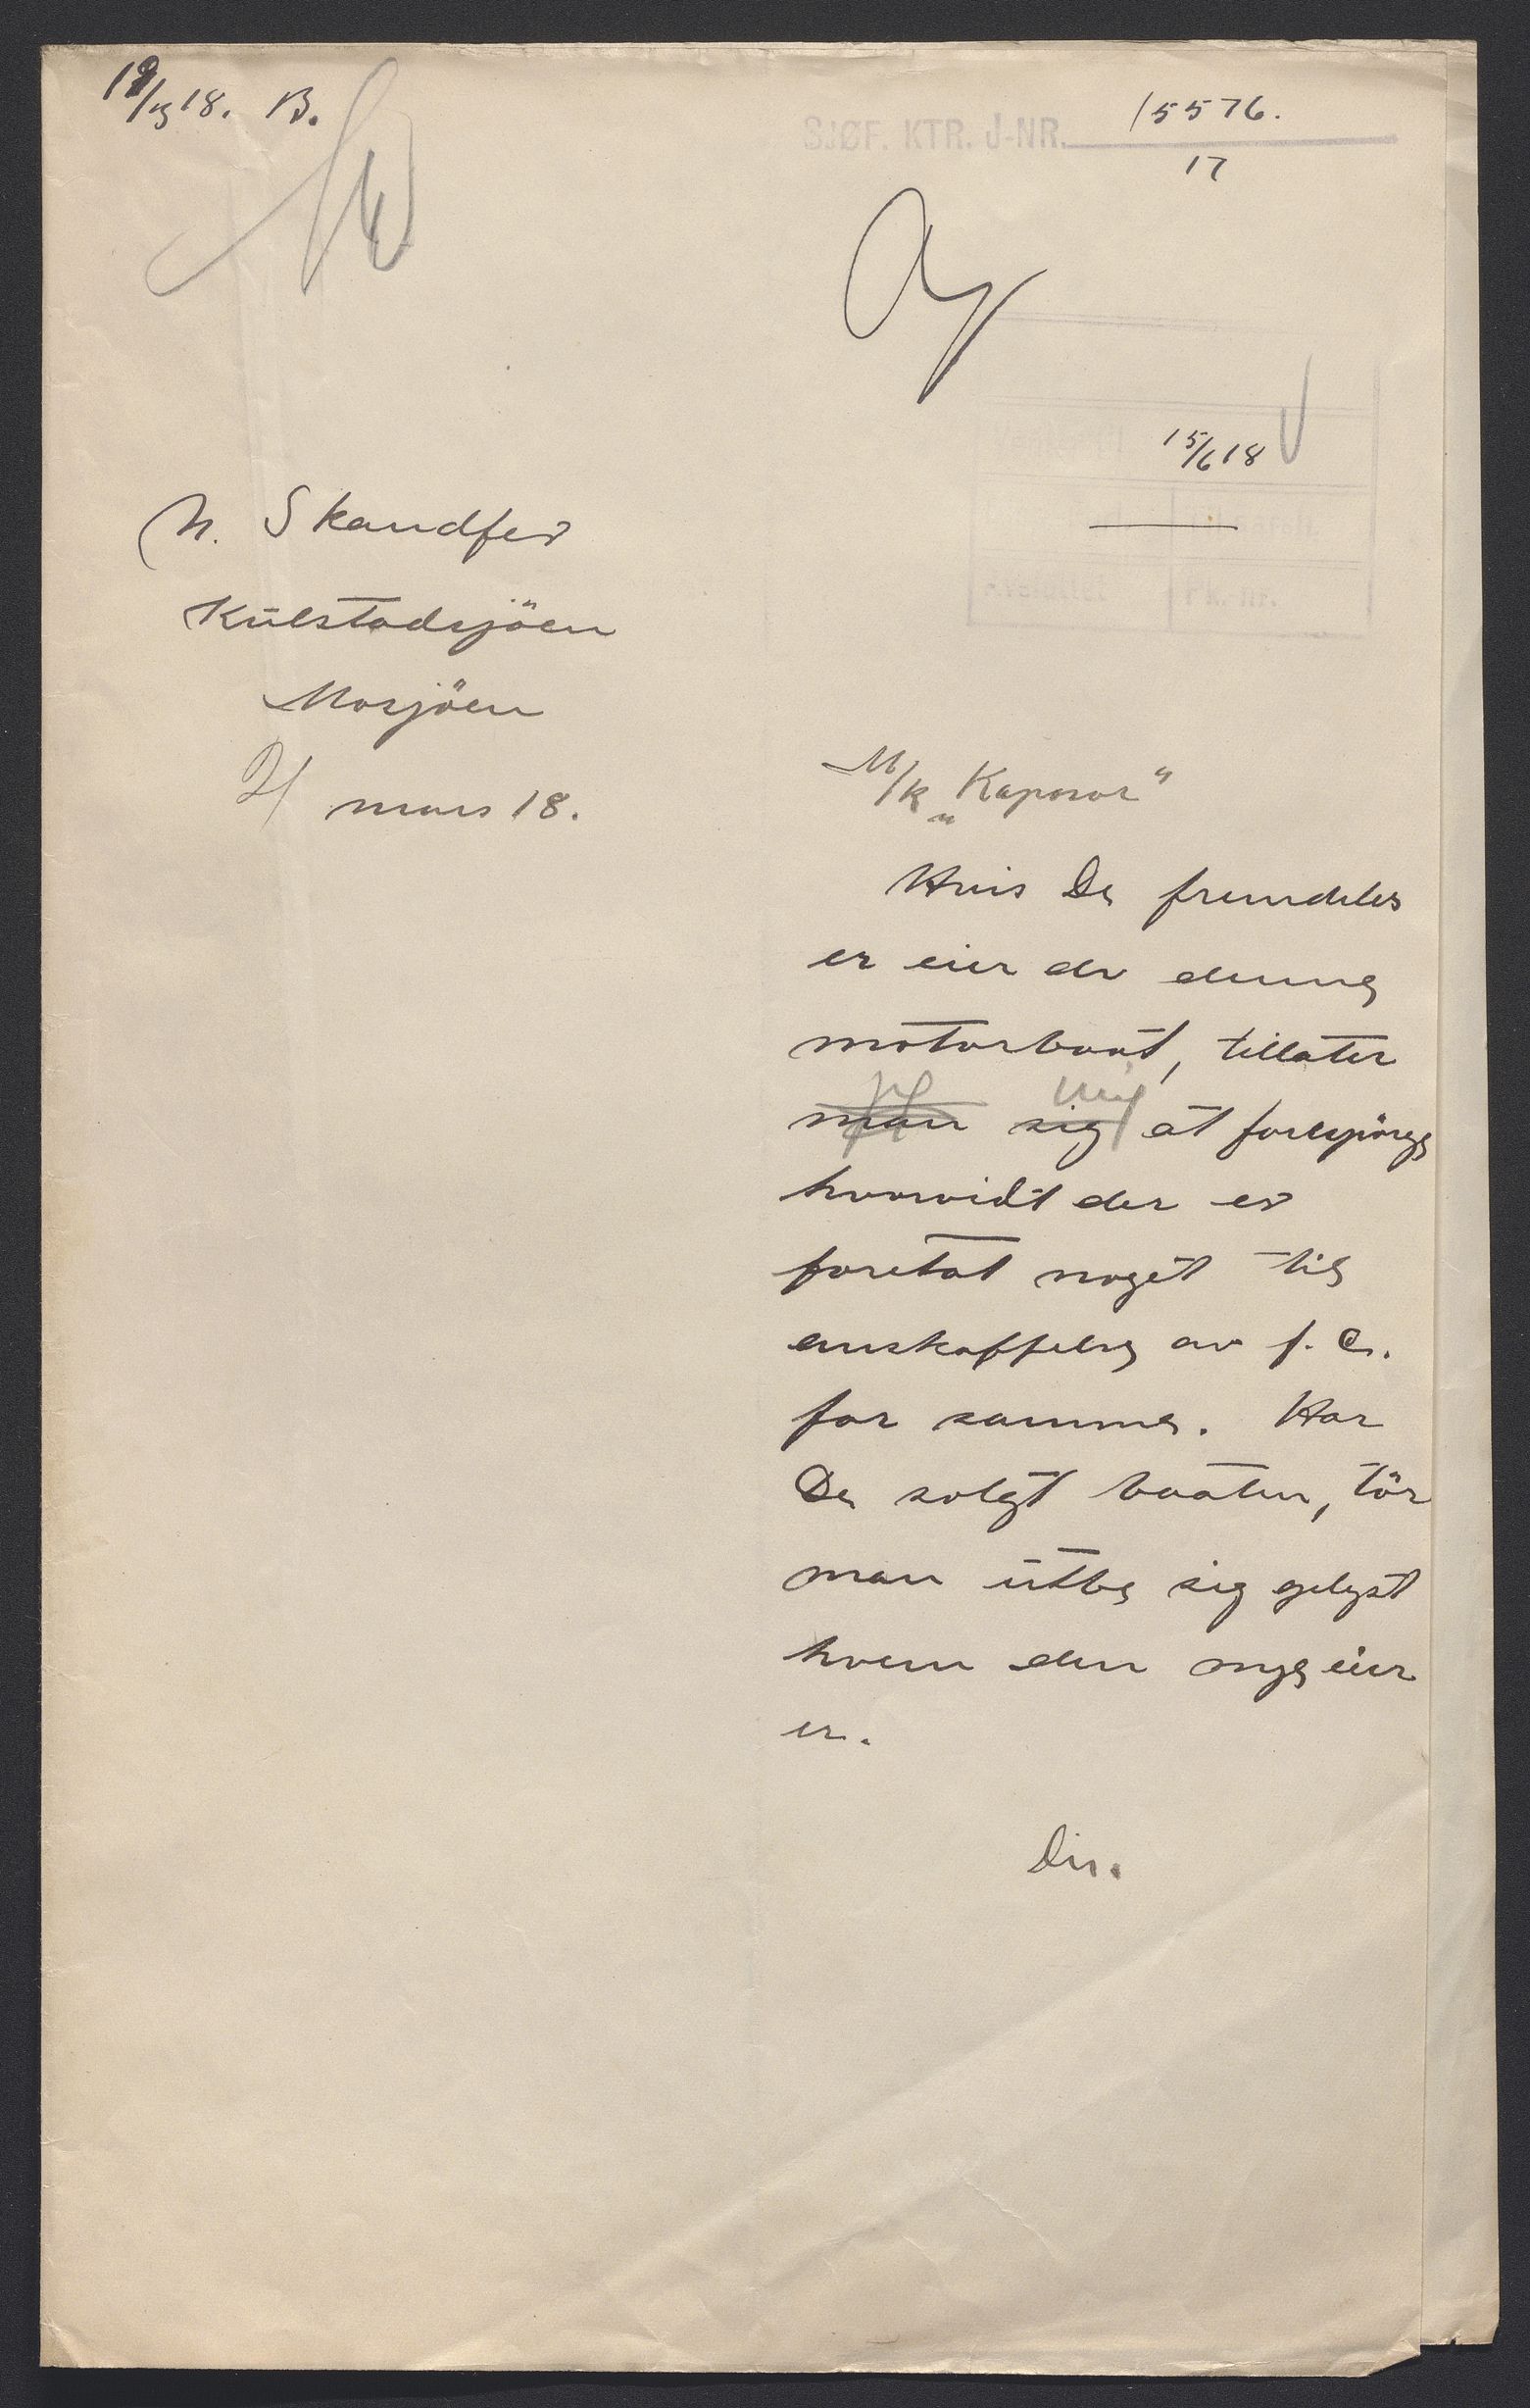 19/3 18. B.
SJØF. KTR. J-NR. 15576.
17
15/6 18
N. Skandfer
Kulstadsjöen
Mosjöen
21 mars 18.
M/k „Kaprora“
Hvis De fremdeles
er eier av denne
motorbaat, tillater
man sig at forespörge
jeg mig
hvorvidt der er
foretat noget til
anskaffelse av f. C.
for samme. Har
De solgt baaten, tör
man utbe sig oplyst
hvem den nye eier
er.
Dir.